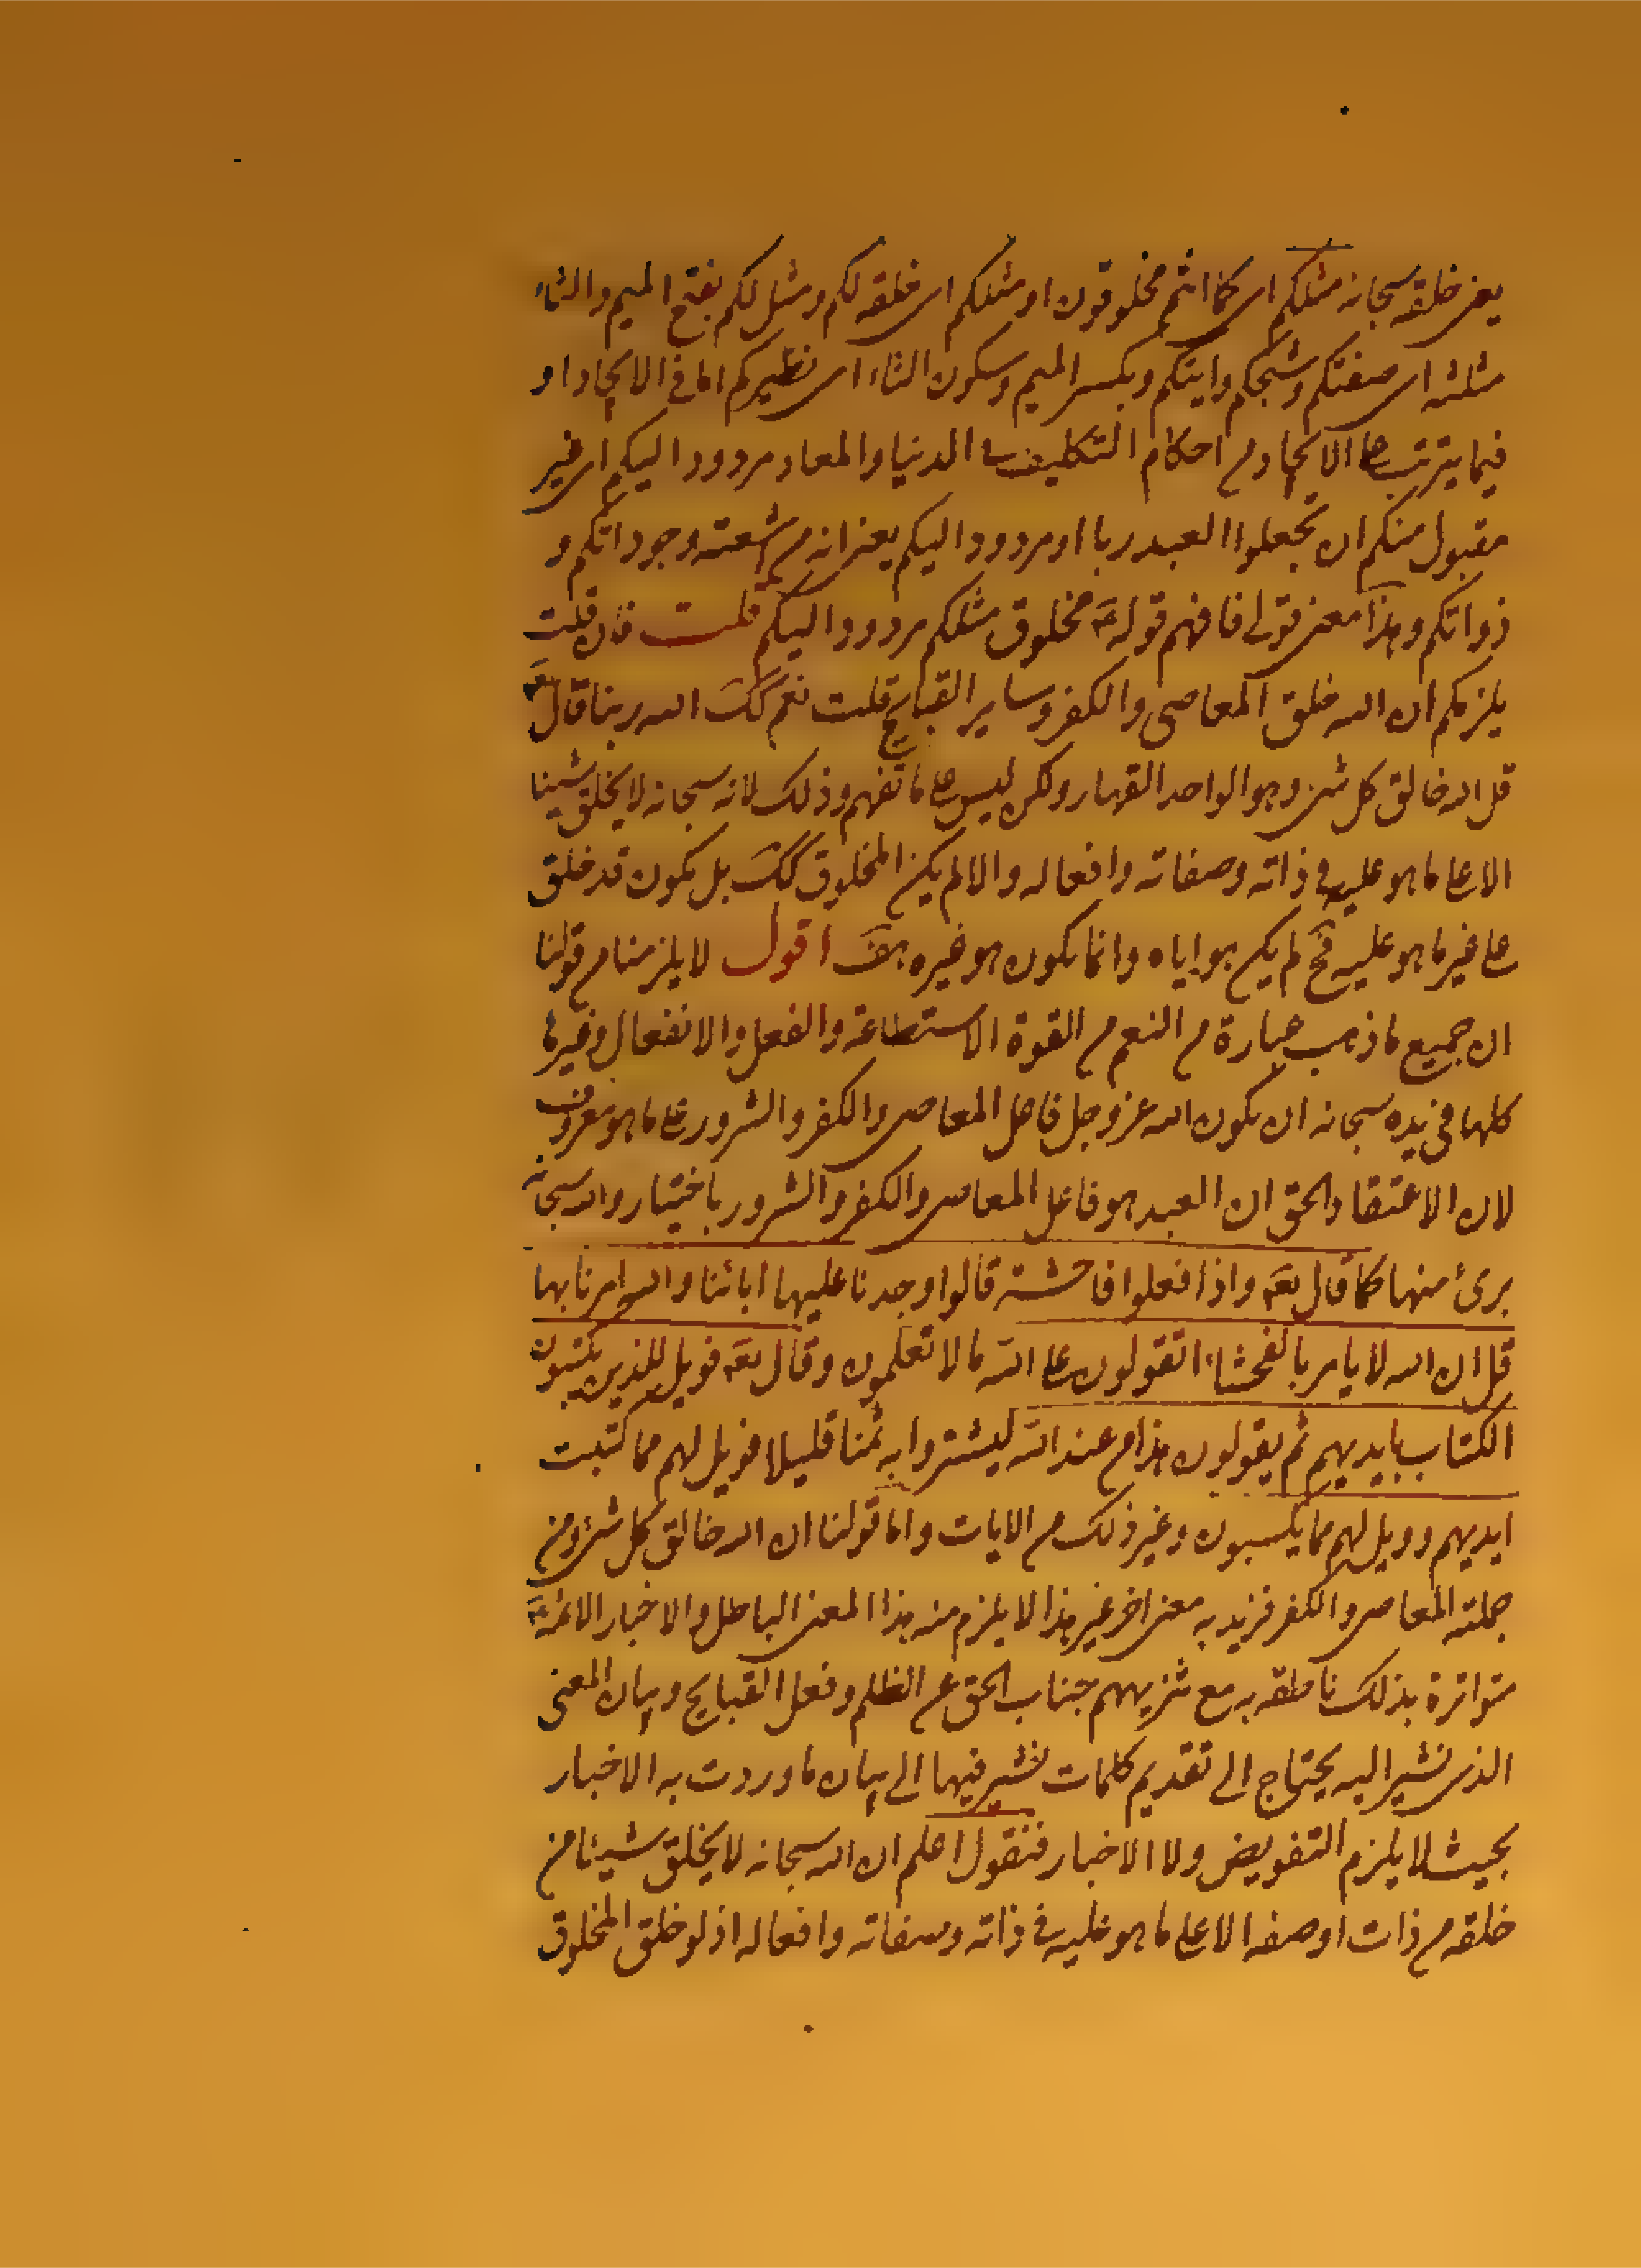 يعنى خلقه سبحانه مثلكم اى كما انتم مخلوقون او مثلكم اى خلقه لكم ومثل لكم بفتح الميم والثاء
مثلثه اى صفتكم وشبحكم وايتكم وبكسر الميم وسكون الثاء اى نظيركم اما فى الايجاد او
فيما يترتب على الايجاد من احكام التكليف الدنيا والمعاد مردود اليكم اى غير
مقبول منكم ان تجعلوا العبد ربا او مردود اليكم يعنى انه من اشعته وجوداتكم و
ذواتكم وهذا معنى قولى فافهم قوله ع مخلوق مثلكم مردود اليكم قلت فان قلت
يلزمكم ان الله خلق المعاصى والكفر وساير القبايح قلت نعم كك الله ربنا قال تع
قل الله خالق كل شئ وهو الواحد القهار ولكن ليس على ما تفهم وذلك لانه سبحانه لا يخلق شيئا
الا على ما هو عليه فى ذاته وصفاته وافعاله والا لم يكن المخلوق كك بل يكون قد خلق
على غير ما هو عليه فح لم يكن هو اياه وانما يكون هو غيره هف اقول لا يلزمنا من قولنا
ان جميع ما ذهب عبارة من النعم من القوة الاستطاعة والفعل والانفعال وغيرها
كلها فى يده سبحانه ان يكون الله عز وجل فاعل المعاصى والكفر والشرور على ما هو معروف
لان الاعتقاد الحق ان العبد هو فاعل المعاصى والكفر والشرور باختيار والله سبحانه
برئ منها كما قال تعه واذا فعلوا فاحشة قالوا وجدنا عليها ابائنا والله امرنا بها
قل ان الله لا يامر بالفحشاء اتقولون على الله ما لا تعلمون وقال تعه فويل للذين يكتبون
الكتاب بايديهم ثم يقولون هذا من عند الله ليشتروا به ثمنا قليلا فويل لهم مما كتبت
ايديهم وويل لهم مما يكسبون وغير ذلك من الايات واما قولنا ان الله خالق كل شئ ومن
جملته المعاصى والكفر فنريد به معنى اخر غير هذا لا يلزم منه هذا المعنى الباطل والاخبار الائمة ع
متواترة بذلك ناطقه به مع تنزيههم جناب الحق عن الظلم وفعل القبايح وبيان المعنى
الذى نشير اليه يحتاج الى تقديم كلمات نشير فيها الى بيان ما وردت به الاخبار
بحيث لا يلزم التفويض ولا الاخبار فنقول اعلم ان الله سبحانه لا يخلق شيئا من
خلقه من ذات او صفه الا على ما هو عليه فى ذاته وصفاته وافعاله اذ لو خلق المخلوق